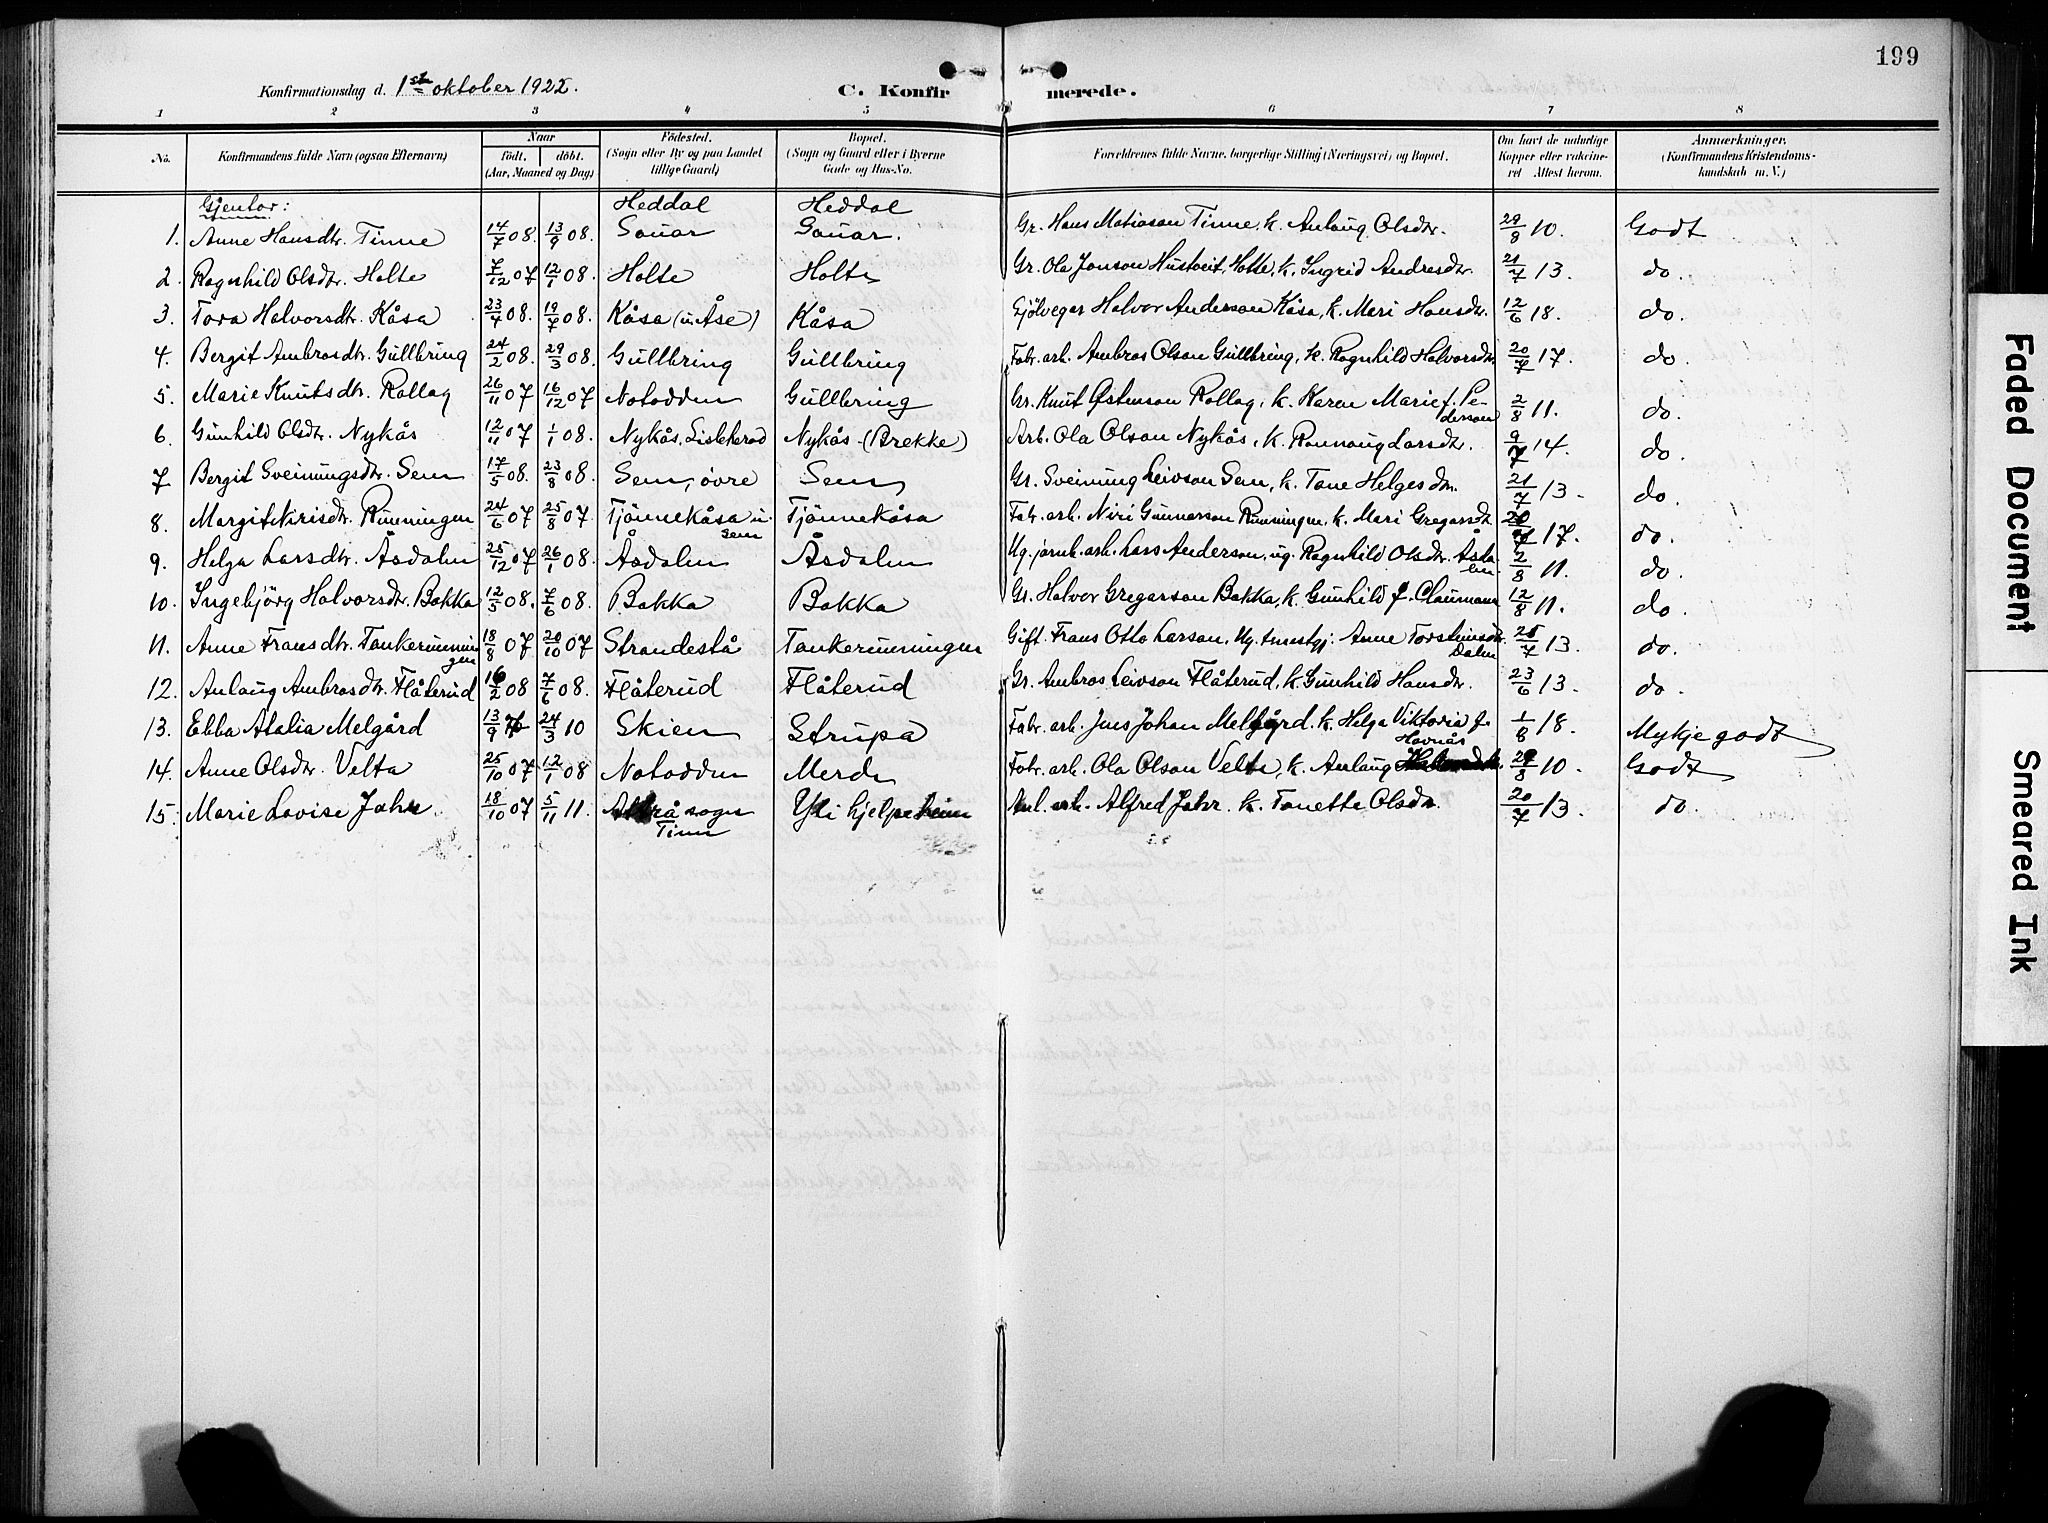 199
Konfirmationsdag d. 1ste oktober 1922.
C. Konfirmerede.
1 2 3 4 5 6 7 8
No. Konfirmandens fulde Navn (ogsaa Efternavn) Naar födt. döbt. (Aar, Maaned og Dag) Födested. (Sogn eller By og paa Landet tillige Gaard) Bopæl. (Sogn og Gaard eller i Byerne Gade og Hus-No. Forældrenes fulde Navne, borgerlige Stilling (Næringsvei) og Bopæl. Om havt de naturlige Kopper eller vaccineret Attest herom. Anmærkninger. (Konfirmandens Kristendomskundskab m. V.)
Gjentor: Heddal Heddal
1. Anne Hansdtr. Tinne 14/7 08. 13/9 08. Sauar Sauar. Gr. Hans Matiason Tinne, k. Anlaug Olsdtr. 29/8 10. Godt
2. Ragnhild Olsdtr. Holte 7/12 07 12/1 08. Holte Holte Gr. Ola Jonson Hustveit, Holte, k. Ingrid Andresdtr. 21/7 13. do.
3. Tora Halvorsdtr. Kåsa 23/4 08. 19/7 08. Kåsa (u. Åse) Kåsa Sjölvegar Halvor Anderson Kåsa, k. Mari Hansdtr. 12/6 18. do.
4. Bergit Ambrosdtr. Gullbring 24/2 08. 29/3 08. Gullbring Gullbring Fabr. arb. Ambros Olson Gullbring, k. Ragnhild Halvorsdtr. 20/7 17. do.
5. Marie Knutsdtr. Rollag 26/11 07 16/12 07 Notodden Gullbring Gr. Knut Østenson Rollag, k. Karen Marie f. Pederson 2/8 11. do.
6. Gunhild Olsdtr. Nykås 12/11 07 1/1 08. Nykås, Lisleherad Nykås (Brekke) Arb. Ola Olson Nykås, k. Rannaug Larsdtr. 9/7 14. do.
7 Bergit Sveinungsdtr. Sem 17/5 08. 23/8 08. Sem, övre Sem Gr. Sveinung Leivson Sem, k. Tone Helgesdtr. 21/7 13. do.
8. Margit Nirisdtr. Runningen 24/6 07 25/8 07. Tjönnekåsa u. Sem Tjönnekåsa Fabr. arb. Niri Gunnarson Runningen, k. Mari Gregarsdtr. 20/7 17. do.
9. Helga Larsdtr. Åsdalen 25/12 07 26/1 08. Åsdalen Åsdalen Ug. jarnb. arb. Lars Anderson, ug. Ragnhild Olsdtr. Åsdalen 2/8 11. do.
10. Ingebjörg Halvorsdtr. Bakka 12/5 08. 7/6 08. Bakka Bakka Gr. Halvor Gregarson Bakka, k. Gunhild f. Clausmann 12/8 11. do.
11. Anne Fransdtr. Tankerunningen 18/8 07 20/10 07 Strandestå Tankerunningen Gift. Frans Otto Larson, Ug. tenestgj. Anne Torsteinsdtr. Dalen 25/7 13. do.
12. Anlaug Ambrosdtr. Flåterud 16/2 08 7/6 08. Flåterud Flåterud Gr. Ambros Leivson Flåterud, k. Gunhild Hansdtr. 23/6 13. do.
13. Ebba Atalia Melgård 13/9 24/3 10 Skien Strupa Fabr. arb. Jens Johan Melgård. k. Helga Viktoria f. Havnås 1/8 18. Mykje godt
14. Anne Olsdtr. Velta 25/10 07 12/1 08 Notodden Merde Fabr. arb. Ola Olson Velta, k. Anlaug 29/8 10. Godt
15. Marie Lovise Jahr 18/10 07 5/11 11. Atrå sogn Tinn Yli hjelpeheim Anl. arb. Alfred Jahr. k. Tonette Olsdtr. 20/7 13. do.
Faded Document
Smeared Ink